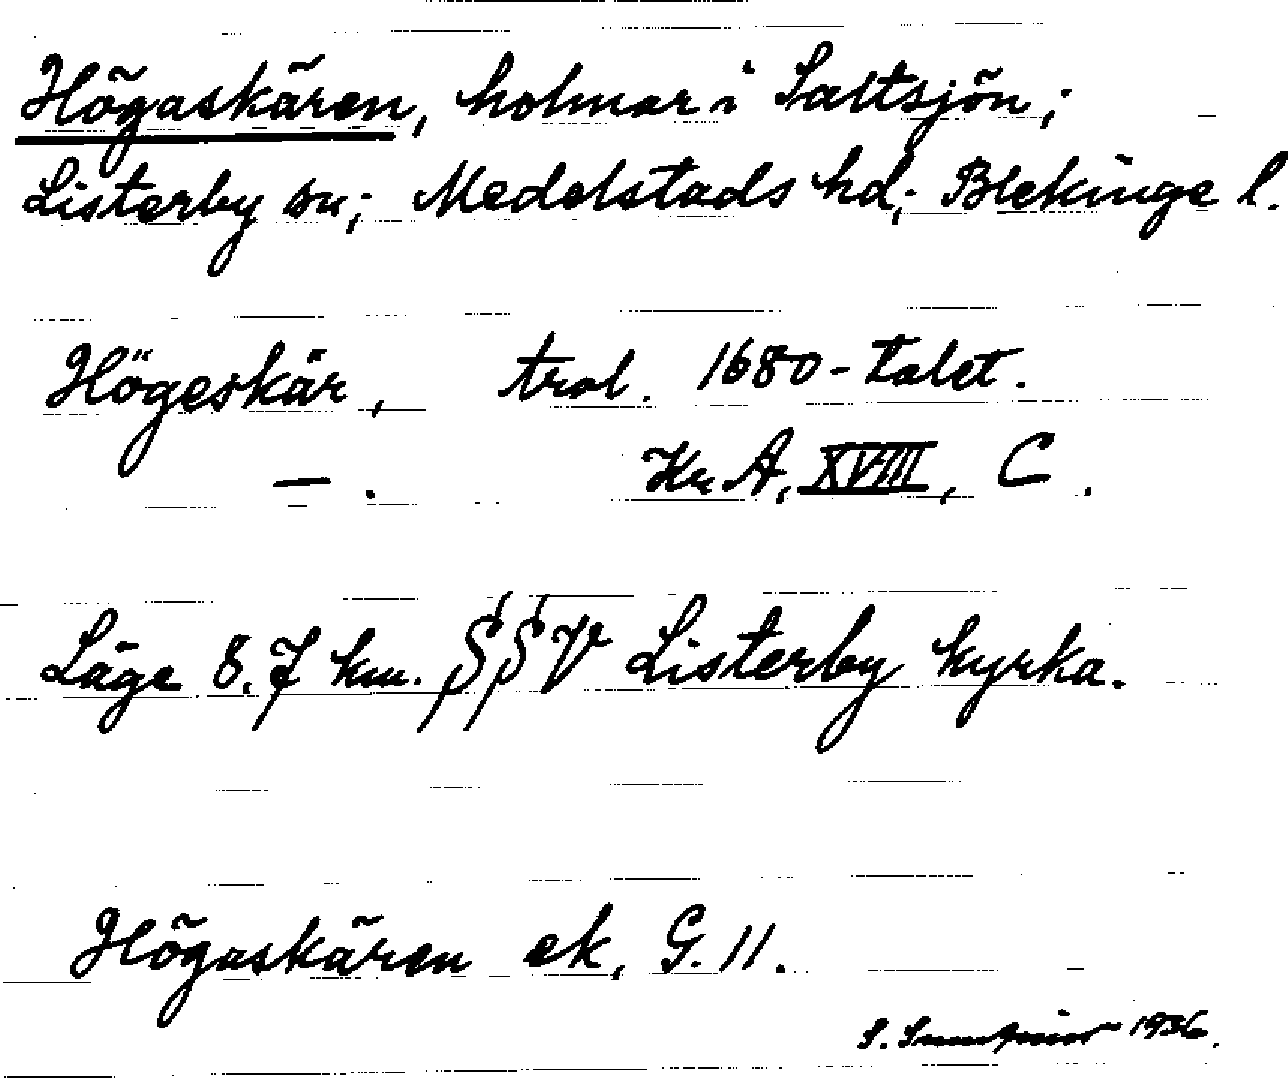 Högaskären, holmar i Saltsjön;
Listerby sn; Medelstads hd; Blekinge l.
Högeskär, trol. 1680-talet.
—. Kr A, XVIII, C.
Läge 8.7 km. SSV Listerby kyrka.
Högaskären ek, G. 11.
S. 1936.